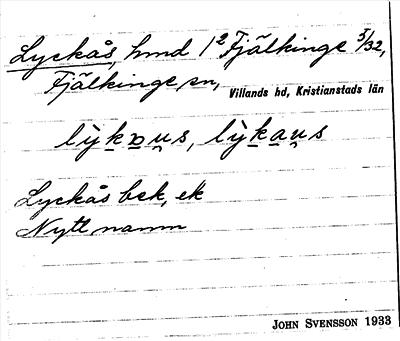 Lyckås, hmd 1² Fjälkinge 5/32,
Fjälkinge sn, Villands hd, Kristianstads län
lỳkɒu̯s, lỳkau̯s
Lyckås bek, ek
Nytt namn
JOHN SVENSSON 1933